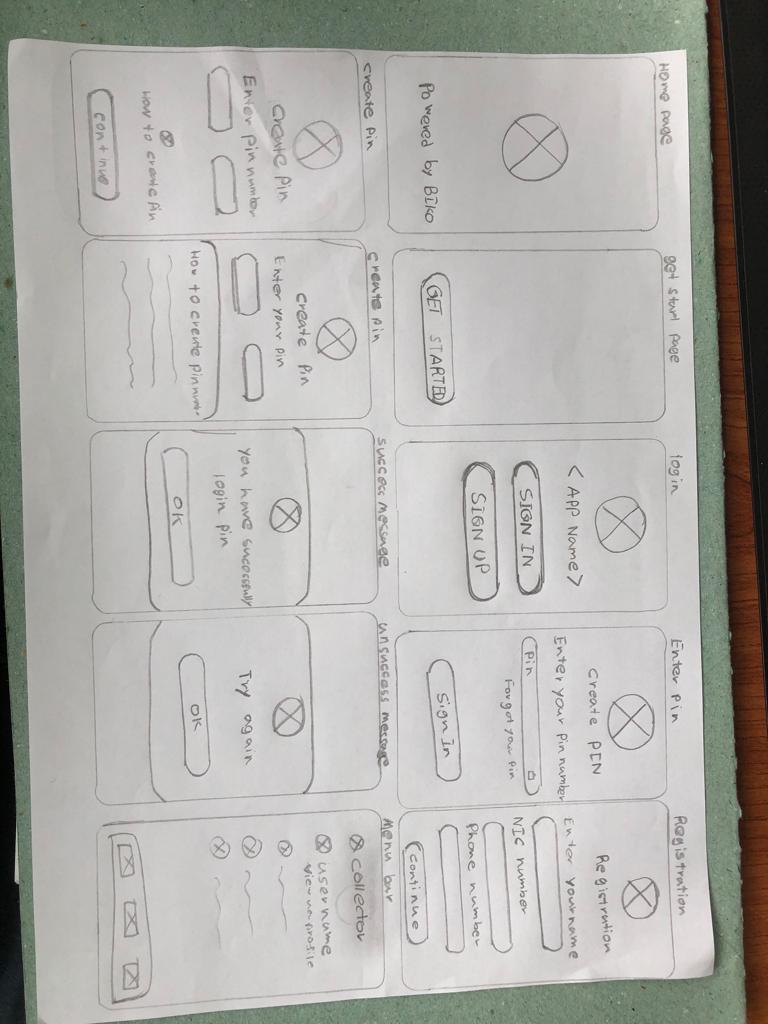 Home page
Powered by Biko
get start page
GET STARTED
login
<APP Name>
SIGN IN
SIGN UP
Enter pin
Create PIN
Enter your pin number
Pin
Forgot your pin
Sign In
Registration
Registration
Enter your name
NIC number
Phone number
continue
create pin
Create Pin
Enter pin number
How to create pin
continue
create pin
create Pin
Enter your pin
How to create pin
success message
you have
login pin
OK
unsuccess message
Try again
OK
Menu bar
collector
username